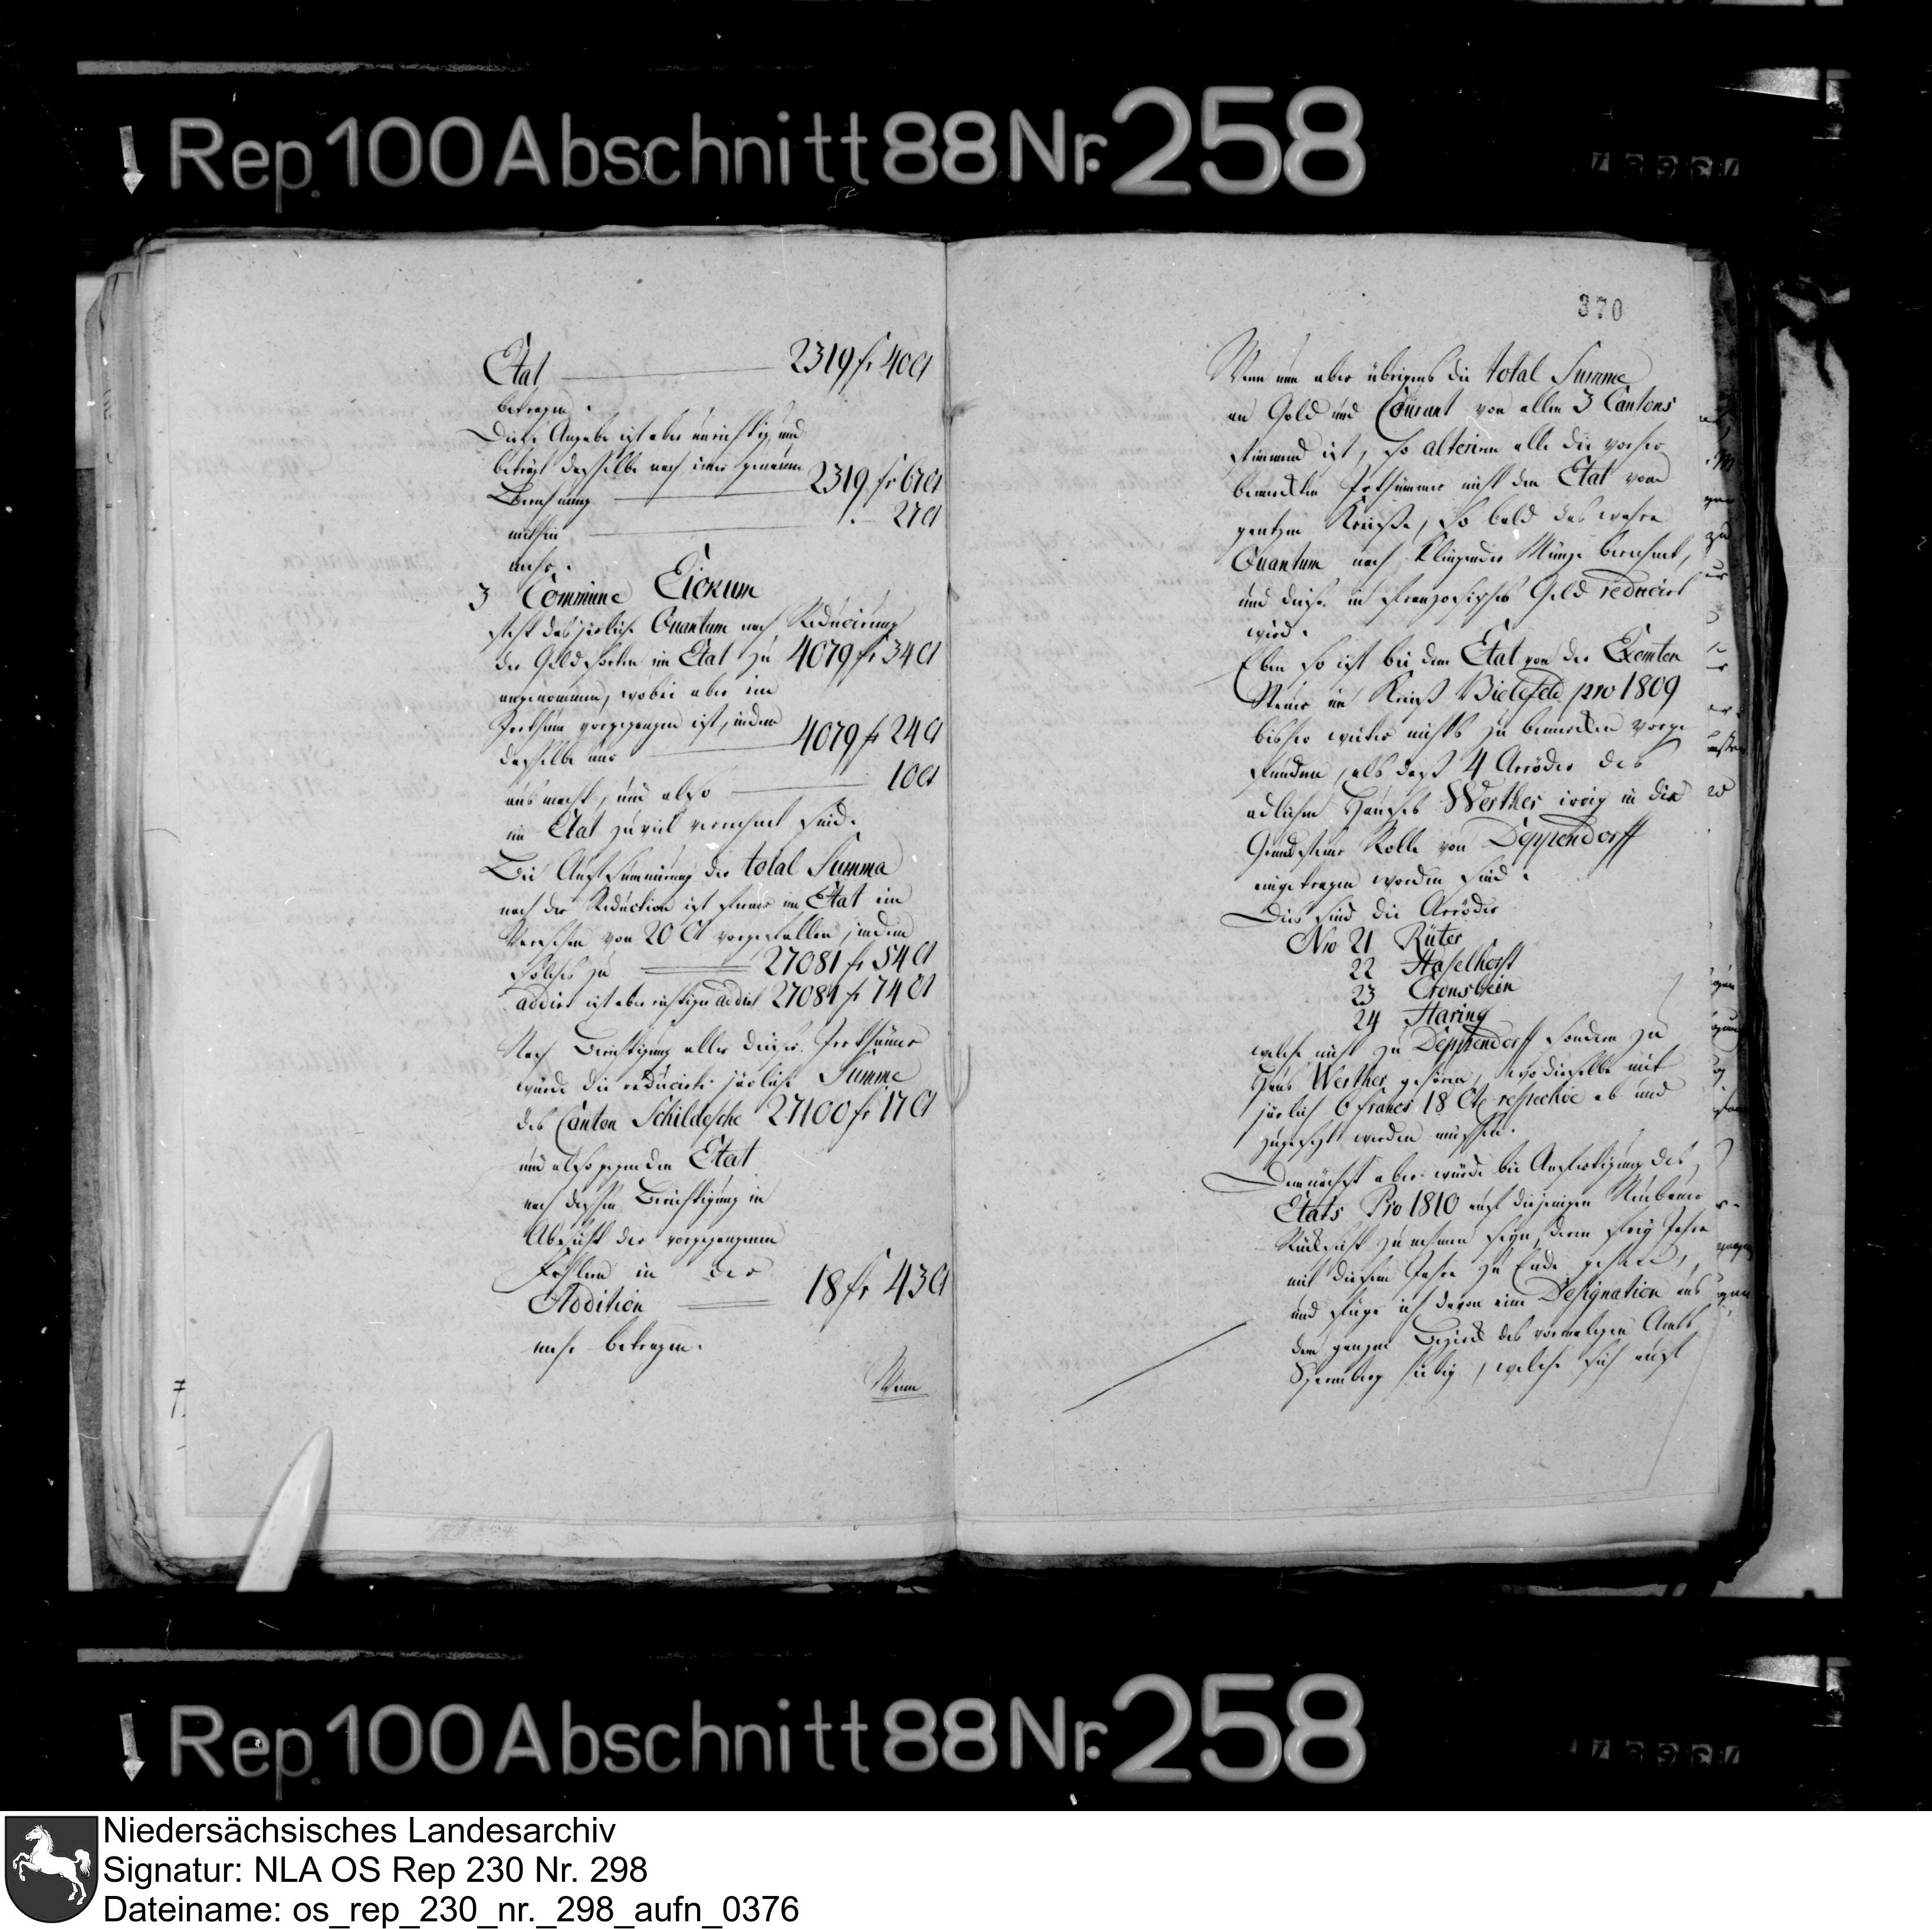 Rep. 100 Abschnitt 88 Nr. 258
Etat 2319 fr 40 Ct
betragen.
Diese Angabe ist aber unrichtig und
beträgt dasselbe nach einer genauen
Berechnung 2319 fr 67 Ct
mithin 27 Ct
mehr.
3 Commune Eickum
steht das järliche Quantum nach Reducirung
der Goldsorten im Etat zu 4079 fr 34 Ct
angenommen, wobei aber ein
Irrthum vorgegangen ist, indem
dasselbe nur 4079 fr 24 Ct
ausmacht, und also 10 Ct
im Etat zuviel berechnet sind.
Bei Aufsummirung der total Summa
nach der Reduction ist ferner im Etat ein
Versehen von 20 Ct vorgefallen, indem
solches zu 27081 fr 54 Ct
addirt ist aber richtiger addirt 27081 fr 74 Ct
Nach Berichtigung aller dieser Irrthümer
würde die reducirte järliche Summe
des Canton Schildesche 27100 fr 17 Ct
und also gegen den Etat
nach dessen Berichtigung in
Absicht der vorgegangenen
Fehler in der
Addition 18 fr 43 Ct
mehr betragen.
Wenn
370
Wenn nun aber übrigens die total Summe
an Gold und Courant von allen 3 Cantons
stimmend ist, so alteriren alle die vorher
bemerkten Irrthümer nicht den Etat vom
gantzen Kreise, so bald das wahre
Quantum nach klingender Münze berechnet,
und diese in französisches Geld reducirt
wird.
Eben so ist bei dem Etat von der Exemten
Steuer im Kreis Bielefeld pro 1809
bisher weiter nichts zu bemerken vorge
funden, als daß 4 Arröder des
adlichen Hauses Werther irrig in die
Grundsteuer Rolle von Deppendorff
eingetragen worden sind.
Dies sind die Arröder
Nro 21 Rüter
22 Haselhorst
23 Cronsbein
24 Haring
welche nicht zu Deppendorff sondern zu
Haus Werther gehören, wo dieselbe mit
järlich 6 francs 18 Ct respective ab und
zugesetzt werden müssen.
Demnächst aber würde bei Anfertigung des
Etats Pro 1810 auf diejenigen Neubauer
Rücksicht zu nehmen seyn, deren frey Jahre
mit diesem Jahre zu Ende gehen,
und füge ich davon eine Designation aus
dem ganzen Bezirk des vormaligen Amts
Sparenberg bei, welche sich auf
Rep. 100 Abschnitt 88 Nr. 258
Niedersächsisches Landesarchiv
Signatur: NLA OS Rep 230 Nr. 298
Dateiname: os_rep_230_nr._298_aufn_0376